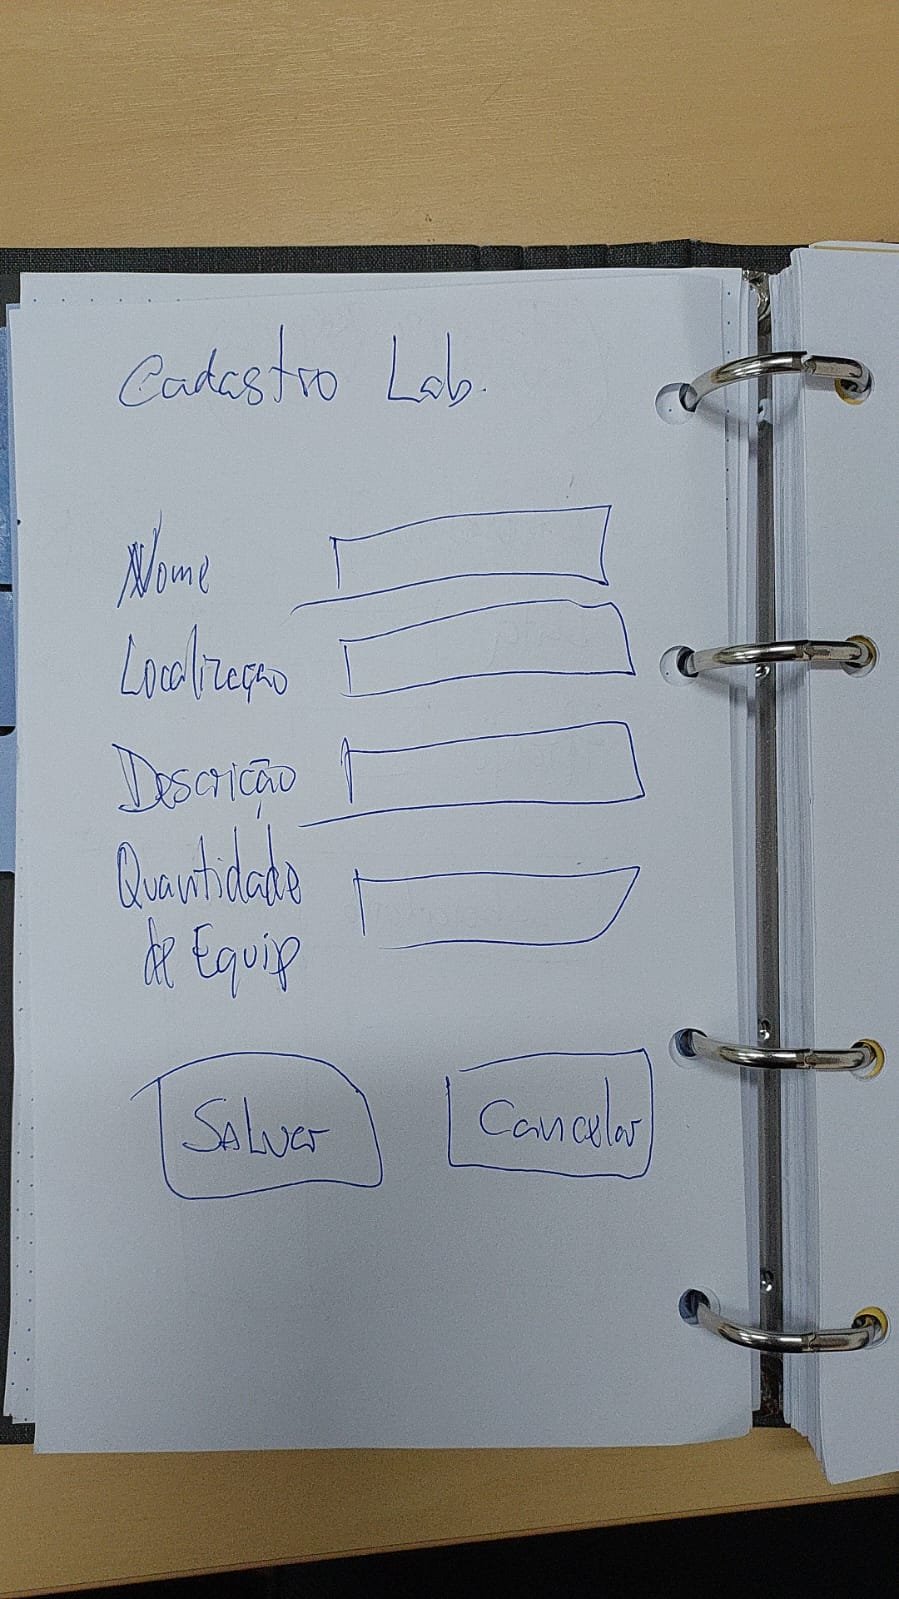 Cadastro Lab.
Nome
Localização
Descrição
Quantidade
de Equip
Salvar
Cancelar